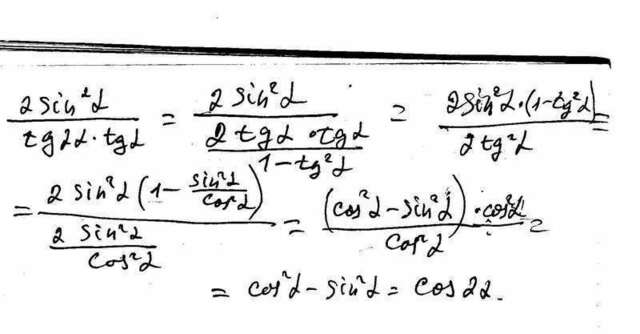 \frac{2 sin²α}{tg2α·tgα} = \frac{2 sin²α}{\frac{2tgα·tgα}{1-tg²α}} = \frac{2sin²α·(1-tg²α)}{2tg²α} =
= \frac{2 sin²α(1-\frac{sin²α}{cos²α})}{\frac{2 sin²α}{cos²α}} = \frac{(cos²α-sin²α)·cos²α}{cos²α} =
= cos²α-sin²α = cos 2α.